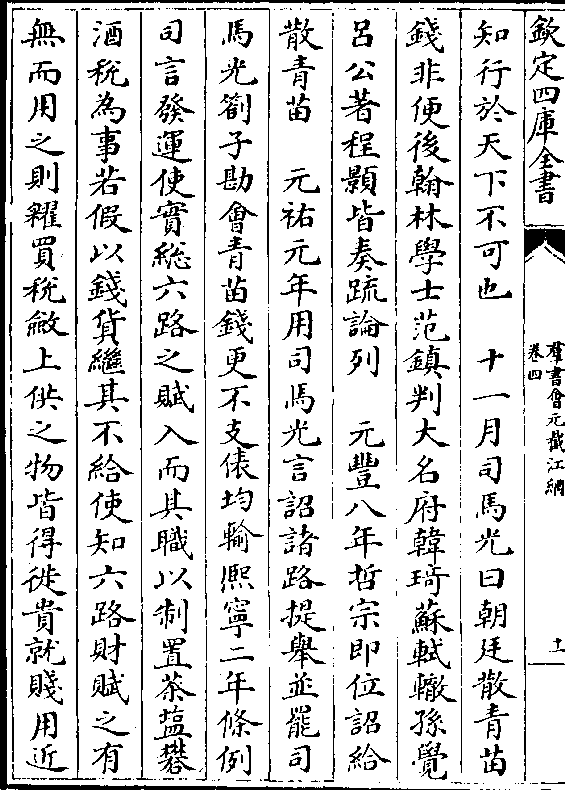 欽定四庫全書
羣書會元截江網
卷四
十一
知行於天下不可也　十一月司馬光曰朝廷散青苗
錢非便後翰林學士范鎮判大名府韓琦蘇軾轍孫覺
呂公著程顥皆奏䟽論列　元豐八年哲宗即位詔給
散青苗　元祐元年用司馬光言詔諸路提舉並罷司
馬光劄子勘會青苗錢更不支俵均輸熈寧二年條例
司言發運使實總六路之賦入而其職以制置茶鹽礬
酒稅為事若假以錢貨繼其不給使知六路財賦之有
無而用之則糴買稅斂上供之物皆得徙貴就賤用近